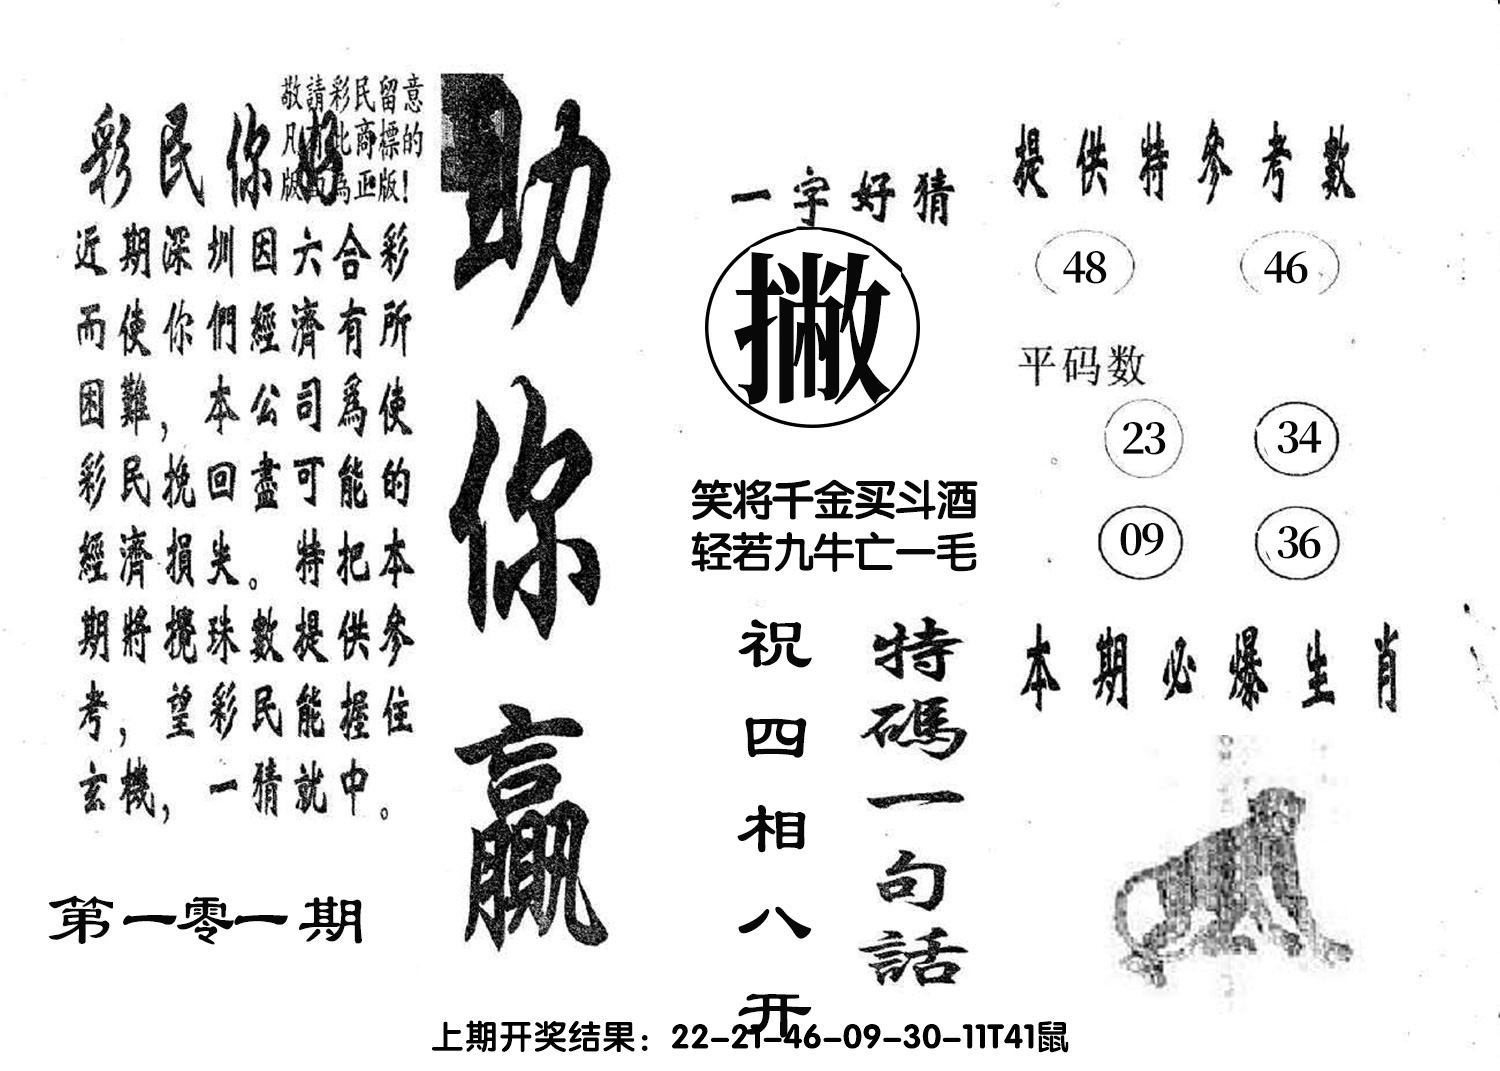 敬請彩民留意
凡有此商標的
版面為正版！
彩民你好
近期深圳因六合彩
而使你們經濟有所
困難，本公司爲使
彩民挽回盡可能的
經濟損失。特把本
期將攪珠數提供參
考，望彩民能握住
玄機，一猜就中。
第一零一期
助你贏
一字好猜
撇
笑将千金买斗酒
轻若九牛亡一毛
特碼一句話
祝四相八开
提供特參考數
48 46
平码数
23 34
09 36
本期必爆生肖
上期开奖结果：22-21-46-09-30-11T41鼠